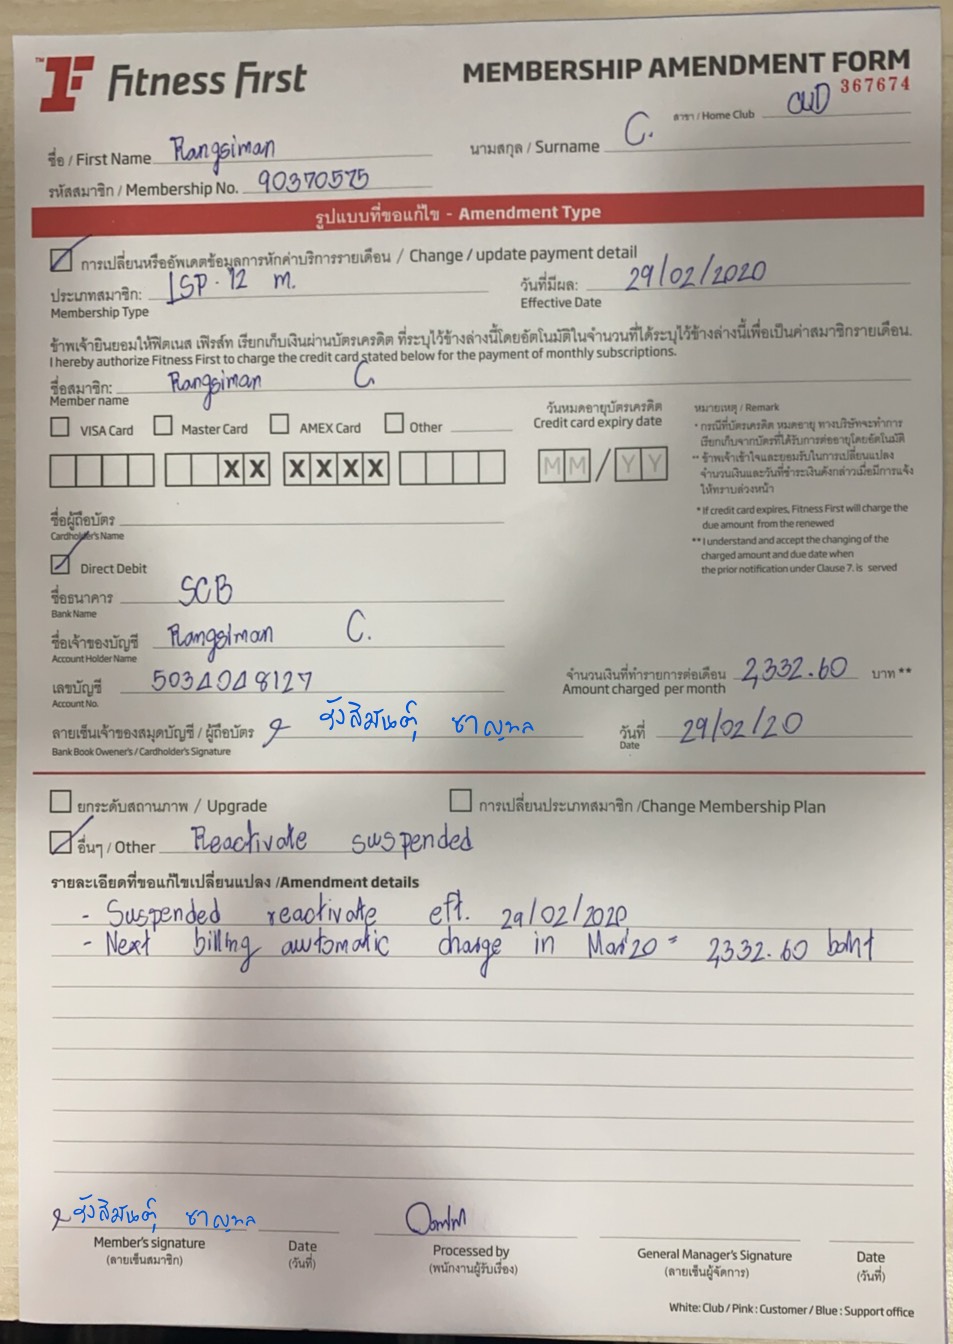 Fitness First
MEMBERSHIP AMENDMENT FORM
367674
สาขา / Home Club CWD
ชื่อ / First Name Rangsiman นามสกุล / Surname C.
รหัสสมาชิก / Membership No. 90370575
รูปแบบที่ขอแก้ไข - Amendment Type
การเปลี่ยนหรืออัพเดตข้อมูลการหักค่าบริการรายเดือน / Change / update payment detail
ประเภทสมาชิก: LSP. 12 m. วันที่มีผล: 29/02/2020
Membership Type Effective Date
ข้าพเจ้ายินยอมให้ฟิตเนส เฟิร์สท์ เรียกเก็บเงินผ่านบัตรเครดิต ที่ระบุไว้ข้างล่างนี้โดยอัตโนมัติในจำนวนที่ได้ระบุไว้ข้างล่างนี้เพื่อเป็นค่าสมาชิกรายเดือน.
I hereby authorize Fitness First to charge the credit card stated below for the payment of monthly subscriptions.
ชื่อสมาชิก: Rangsiman C.
Member name
VISA Card Master Card AMEX Card Other
วันหมดอายุบัตรเครดิต
Credit card expiry date
XX XXXX MM/YY
หมายเหตุ / Remark
* กรณีที่บัตรเครดิต หมดอายุ ทางบริษัทจะทำการ
เรียกเก็บจากบัตรที่ได้รับการต่ออายุโดยอัตโนมัติ
** ข้าพเจ้าเข้าใจและยอมรับในการเปลี่ยนแปลง
จำนวนเงินและวันที่ชำระเงินดังกล่าวเมื่อมีการแจ้ง
ให้ทราบล่วงหน้า
* If credit card expires, Fitness First will charge the
due amount from the renewed
** I understand and accept the changing of the
charged amount and due date when
the prior notification under Clause 7. is served
ชื่อผู้ถือบัตร
Cardholder's Name
Direct Debit
ชื่อธนาคาร SCB
Bank Name
ชื่อเจ้าของบัญชี Rangsiman C.
Account Holder Name
เลขบัญชี 5034048127
Account No.
จำนวนเงินที่ทำรายการต่อเดือน 2,332.60 บาท **
Amount charged per month
ลายเซ็นเจ้าของสมุดบัญชี / ผู้ถือบัตร รังสิมันตุ์ ชาญพล วันที่ 29/02/20
Bank Book Owener's / Cardholder's Signature Date
ยกระดับสถานภาพ / Upgrade การเปลี่ยนประเภทสมาชิก /Change Membership Plan
อื่นๆ / Other Reactivate suspended
รายละเอียดที่ขอแก้ไขเปลี่ยนแปลง /Amendment details
- Suspended reactivate eft. 29/02/2020
- Next billing automatic charge in Mar'20 = 2,332.60 baht
รังสิมันตุ์ ชาญพล
Member's signature Date Processed by General Manager's Signature Date
(ลายเซ็นสมาชิก) (วันที่) (พนักงานผู้รับเรื่อง) (ลายเซ็นผู้จัดการ) (วันที่)
White: Club / Pink : Customer / Blue : Support office